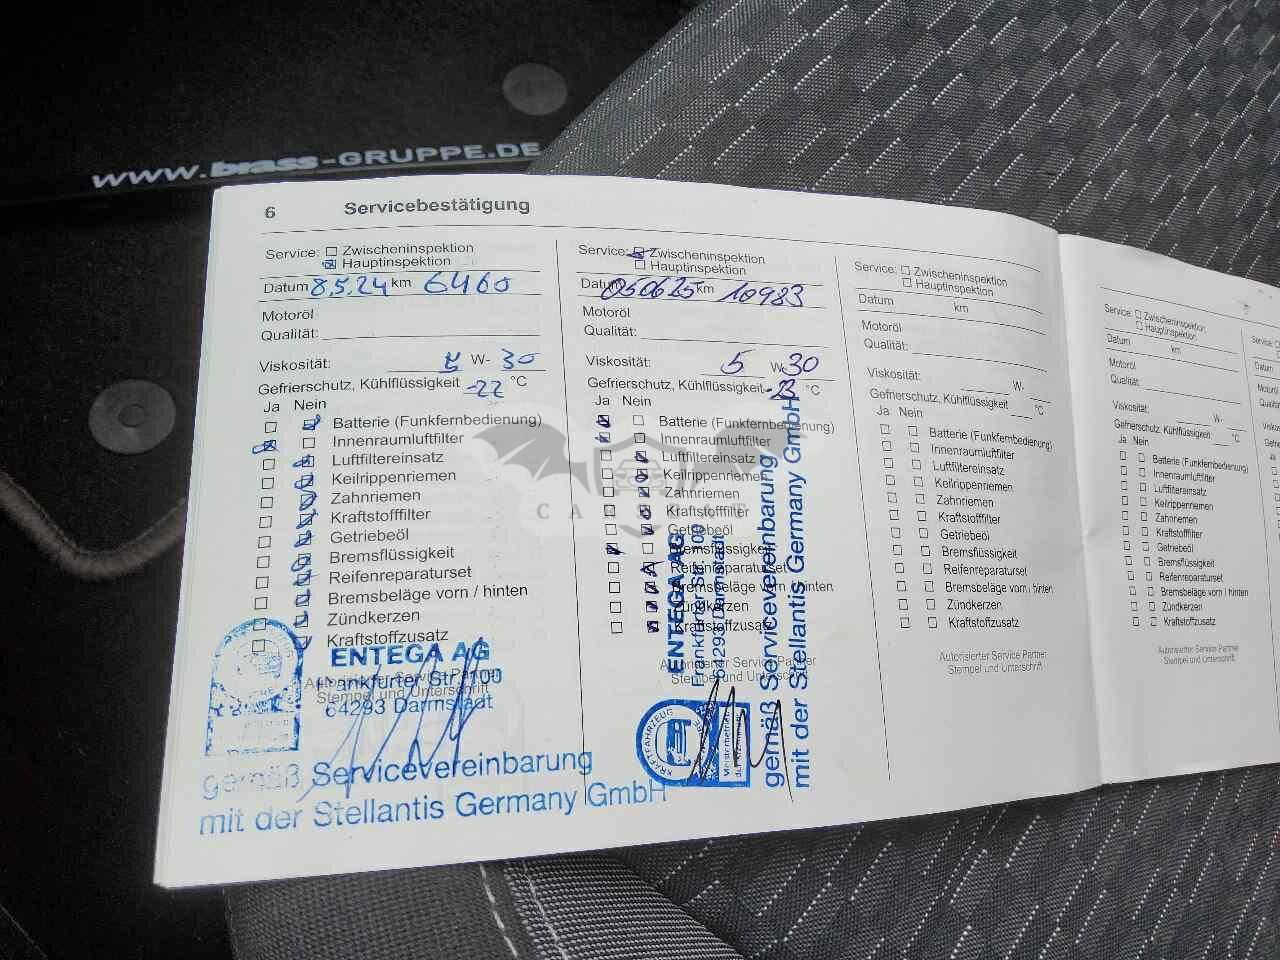 www.brass-GRUPPE.DE
6 Servicebestätigung
Service: Zwischeninspektion
Hauptinspektion
Datum 8.5.24 km 6460
Motoröl
Qualität:
Viskosität: W- 30
Gefrierschutz, Kühlflüssigkeit -22 °C
Ja Nein
Batterie (Funkfernbedienung)
Innenraumluftfilter
Luftfiltereinsatz
Keilrippenriemen
Zahnriemen
Kraftstofffilter
Getriebeöl
Bremsflüssigkeit
Reifenreparaturset
Bremsbeläge vorn / hinten
Zündkerzen
Kraftstoffzusatz
Autorisierter Service Partner
Stempel und Unterschrift
ENTEGA AG
Frankfurter Str. 100
64293 Darmstadt
gemäß Servicevereinbarung
mit der Stellantis Germany GmbH
Service: Zwischeninspektion
Hauptinspektion
Datum 050625 km 10983
Motoröl
Qualität:
Viskosität: 5 W- 30
Gefrierschutz, Kühlflüssigkeit °C
Ja Nein
Batterie (Funkfernbedienung)
Innenraumluftfilter
Luftfiltereinsatz
Keilrippenriemen
Zahnriemen
Kraftstofffilter
Getriebeöl
Bremsflüssigkeit
Reifenreparaturset
Bremsbeläge vorn / hinten
Zündkerzen
Kraftstoffzusatz
Autorisierter Service Partner
Stempel und Unterschrift
ENTEGA AG
Frankfurter Str. 100
64293 Darmstadt
gemäß Servicevereinbarung
mit der Stellantis Germany GmbH
KRAFTFAHRZEUG
Meisterbetrieb
Service: Zwischeninspektion
Hauptinspektion
Datum km
Motoröl
Qualität:
Viskosität: W-
Gefrierschutz, Kühlflüssigkeit °C
Ja Nein
Batterie (Funkfernbedienung)
Innenraumluftfilter
Luftfiltereinsatz
Keilrippenriemen
Zahnriemen
Kraftstofffilter
Getriebeöl
Bremsflüssigkeit
Reifenreparaturset
Bremsbeläge vorn / hinten
Zündkerzen
Kraftstoffzusatz
Autorisierter Service Partner
Stempel und Unterschrift
Service: Zwischeninspektion
Hauptinspektion
Datum km
Motoröl
Qualität:
Viskosität: W-
Gefrierschutz, Kühlflüssigkeit °C
Ja Nein
Batterie (Funkfernbedienung)
Innenraumluftfilter
Luftfiltereinsatz
Keilrippenriemen
Zahnriemen
Kraftstofffilter
Getriebeöl
Bremsflüssigkeit
Reifenreparaturset
Bremsbeläge vorn / hinten
Zündkerzen
Kraftstoffzusatz
Autorisierter Service Partner
Stempel und Unterschrift
Service:
Datum
Motoröl
Ja